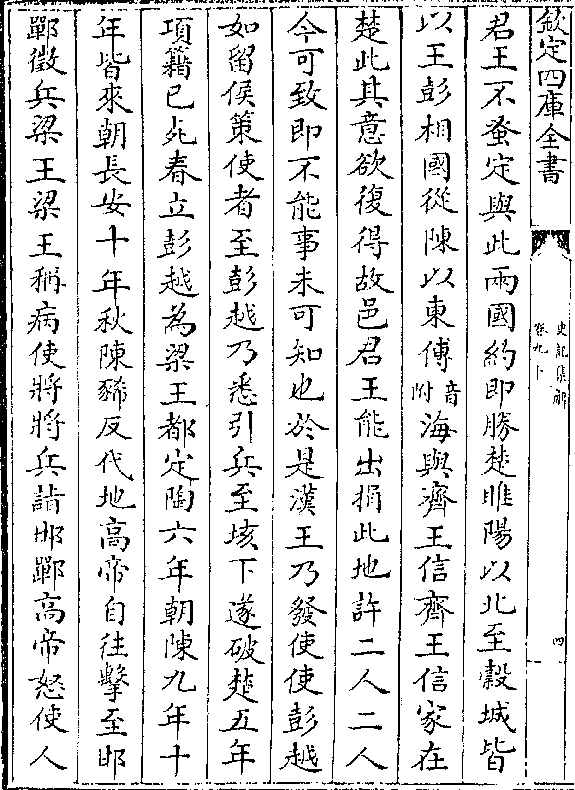 欽定四庫全書
史記集解
卷九十
四
君王不蚤定與此兩國約即勝楚睢陽以北至穀城皆
以王彭相國從陳以東傅音附海與齊王信齊王信家在
楚此其意欲復得故邑君王能出捐此地許二人二人
今可致即不能事未可知也於是漢王乃發使使彭越
如留侯策使者至彭越乃悉引兵至垓下遂破楚五年
項籍已死春立彭越為梁王都定陶六年朝陳九年十
年皆來朝長安十年秋陳豨反代地高帝自往擊至邯
鄲徵兵梁王梁王稱病使將將兵詣邯鄲高帝怒使人